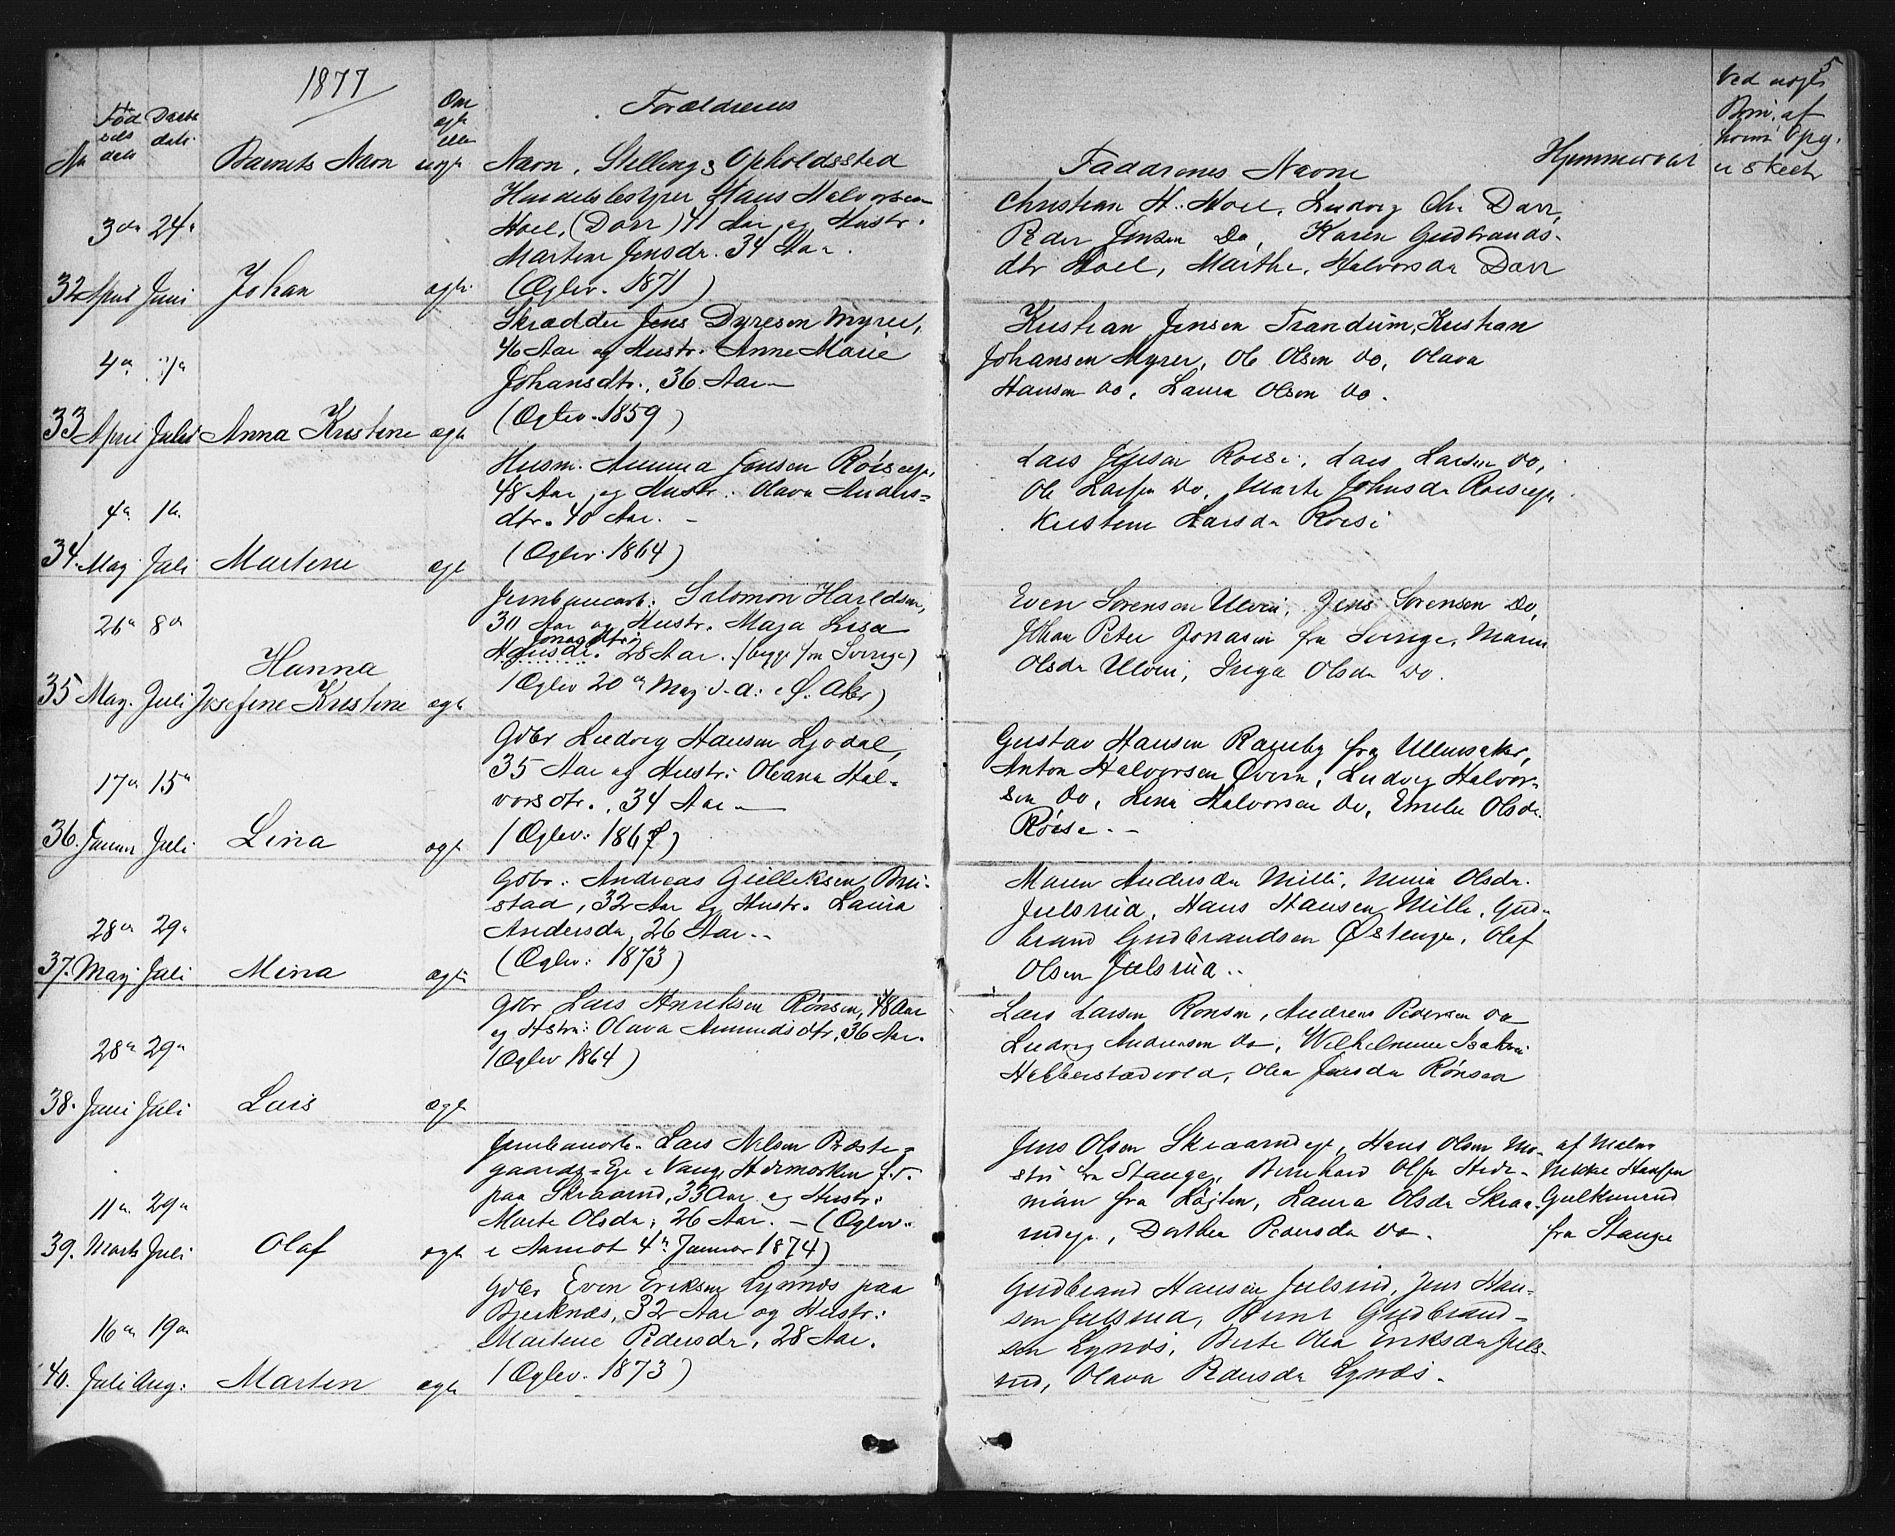 1877
5
Fød
sels
dato
Daabs
dato
Om
ægte
eller
uægt
Forældrenes
No
Barnets Navn
Navn, Stilling & Opholdssted
Faddrenes Navne
Hjemmedøbt
Ved nogle
af
hvem Opg.
er skeet
32 3die April 24de Juni Johan ægte
Handelsbestyrer Hans Halvorsen
Hoel, (Dorr) 41 Aar og Hustr.
Martine Jensdr. 34 Aar.
(Ægtev. 1871)
Christian H. Hoel, Ludvig Chr. Dorr,
Peder Jensen Do, Karen Gudbrands-
dtr Hoel, Marthe Halvorsdr Dorr
33 4de April Juli Anna Kristine ægte
Skrædder Jens Dyresen Myrer,
46 Aar og Hustr. Anne Marie
Johansdtr., 36 Aar
(Ægtev. 1859)
Kristian Jensen Trandum, Kristian
Johansen Myrer, Ole Olsen do, Olava
Hansen do, Laura Olsen do.
34. 4de May 1ste Juli Martine ægt
Husm. Amund Jensen Røiseeje,
48 Aar og Hustr. Olava Anders=
dtr. 40 Aar. -
(Ægtev. 1864)
Lars Jensen Roise, Lars Larsen do,
Ole Larsen do, Marte Johnsdr Roiseeje
Kristine Larsdr Roise
35 26de May. 8de Juli Hanna
Josefine Kristine ægte
Jernbanearb. Salomon Harldsen,
30 Aar og Hustr. Maja Lisa
Jonasdtr.
Hansdr. 28 Aar. (begge fra Sverige)
(Ægtev 20de May d. A. i Ø. Aker)
Even Sorensen Ulvin, Jens Sorensen Do,
Johan Peter Jonasen fra Sverige, Maren
Olsdr Ulvin, Inga Olsdr do.
36. 17de Januar 15de Juli Lina ægte
Gdbr Ludvig Hansen Ljødal,
35 Aar og Hustr. Oleana Hal-
vorsdtr., 34 Aar
(Ægtev: 1867)
Gustav Hansen Raanby fra Ullensaker,
Anton Halvorsen Øvern, Ludvig Halvor-
sen do, Lina Halvorsen do, Emilie Olsdr.
Røise. -
37. 28de May 29de Juli Mina ægte
Gdbr. Andreas Gulliksen Bru-
stad, 32 Aar og Hustr. Laura
Andersdr, 26 Aar. -
(Ægtev: 1873)
Maren Andersdr Milli, Maria Olsdr.
Julsrud, Hans Hansen Milli, Gud-
brand Gudbrandsen Østenge, Olaf
Olsen Julsrud..
38. 28de Juni 29de Juli Lars ægte
Gdbr Lars Henriksen Rønsen, 48 Aar
og Hstru: Olava Amundsdtr, 36 Aar.
(Ægtev 1864)
Lars Larsen Rønsen, Andreas Pedersen do
Ludvig Andersen do, Wilhelmine Isaksen
Hebberstadvold, Olea Jensdr Rønsen
39. 11te Marts 29de Juli Olaf ægte
Jernbanearb. Lars Nilsen Bæste=
gaards=Eje i Vang, Hedemarken f. T.
paa Skraarud, 33 Aar og Hustr:
Marte Olsdr, 26 Aar. - (Ægtev.
i Aamot 4de Januar 1874)
Jens Olsen Skraarudeje, Hans Olsen Mo-
stu fra Stange, Bernhard Olsen Hede-
man fra Løjten, Laura Olsdr Skraa-
rudeje, Dorthea Pedersdr do.
af Malar
Mikkel Hansen
Gulkinrud
fra Stange
40. 16de Juli 19de Aug: Marten ægte
Gdbr Even Eriksen Lynæs paa
Bjerknæs, 32 Aar og Hustr:
Martene Pedersdr, 28 Aar.
(Ægtev. 1873)
Gudbrand Hansen Julsrud, Jens Han-
sen Julsrud, Bernt Gudbrand-
sen Lynæs, Berte Olea Eriksdr Juls-
rud, Olava Pedersdr Lynæs.